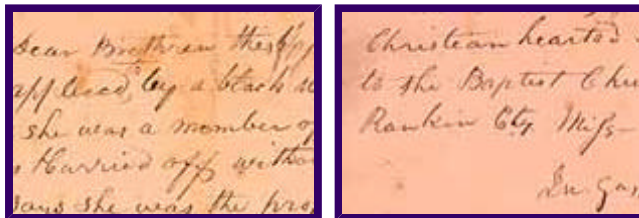 Dear Brethren this
applied, by a black
she was a member of
carried off without
says she was the pro
Christian hearted
to the Baptist Chu
Rankin Cty Miss
In Gos